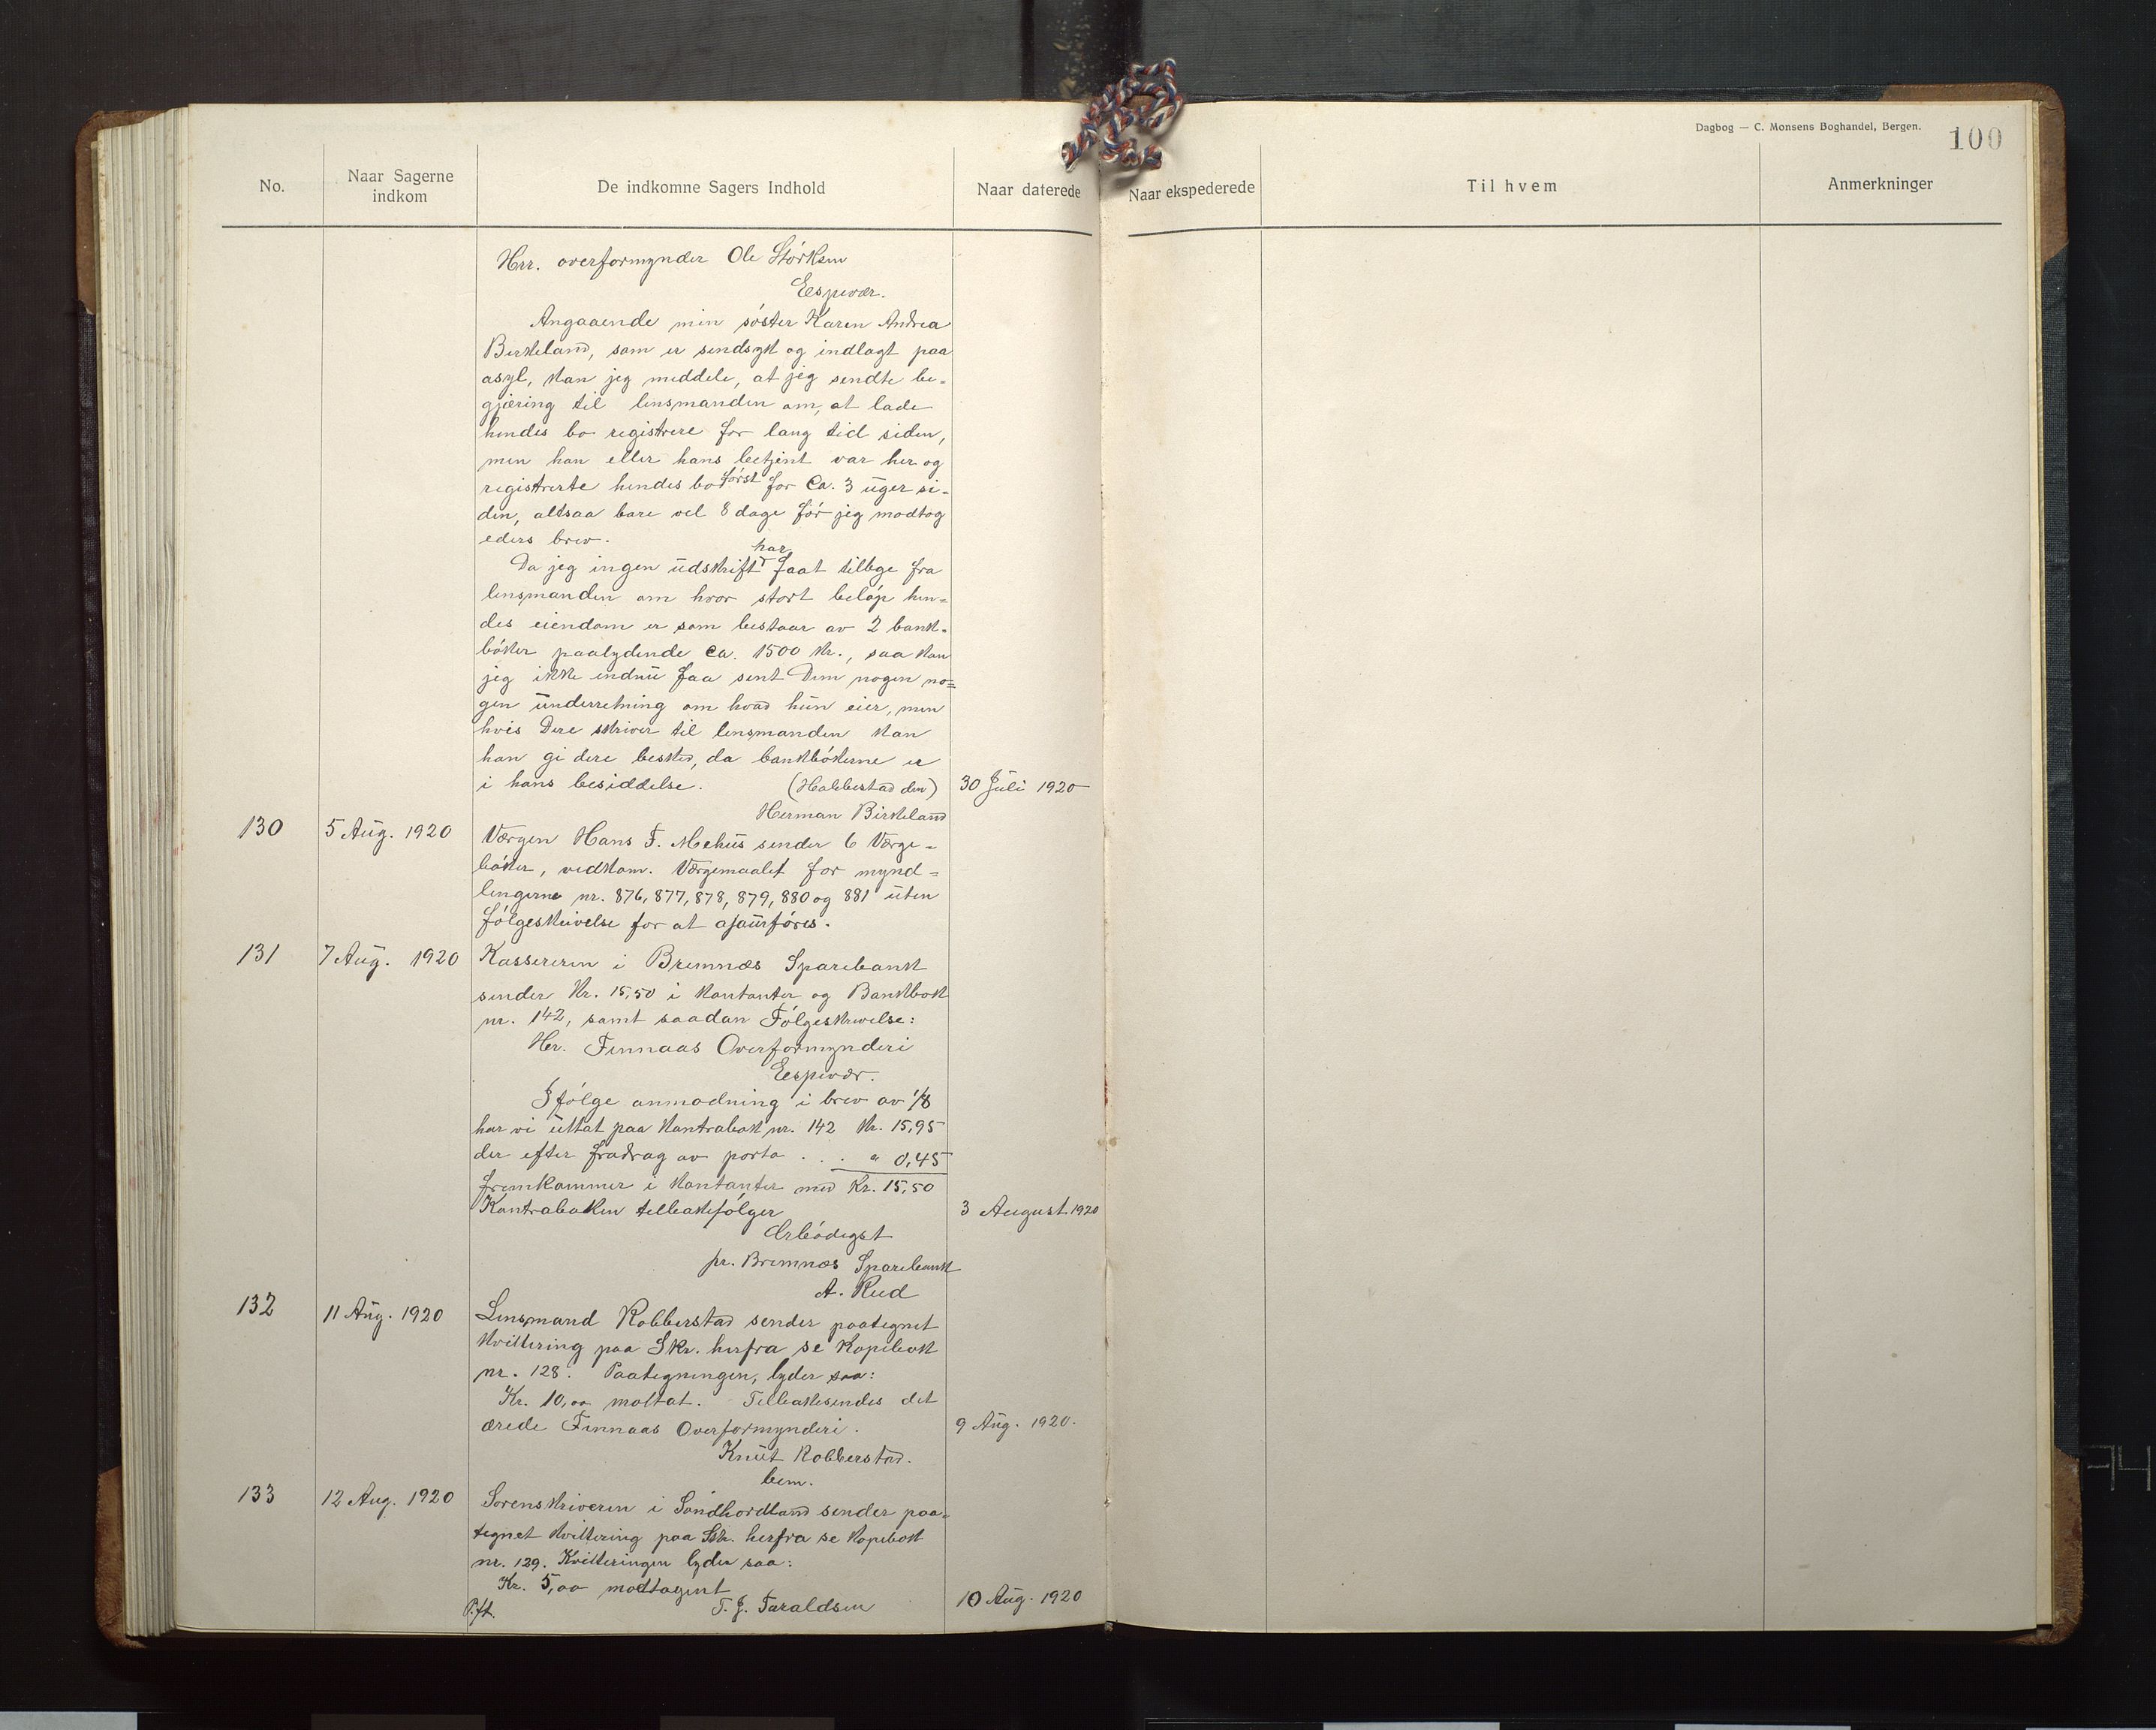 Dagbog — C. Monsens Boghandel, Bergen.
100
No.
Naar Sagerne indkom
De indkomne Sagers Indhold
Naar daterede
Naar ekspederede
Til hvem
Anmerkninger
Hrr. overformynder Ole Størksen
Espevær.
Angaaende min søster Karen Andrea
Birkeland, som er sendsyk og indlagt paa
asyl, kan jeg meddele, at jeg sendte be-
gjæring til lensmanden om, at lade
hendes bo registrere for lang tid siden,
men han eller hans betjent var her og
registrerte hendes bo først for ca. 3 uger si-
den, altsaa bare vel 8 dage før jeg modtog
eders brev.
Da jeg ingen udskrift har faat tilbage fra
lensmanden om hvor stort beløp hen-
des eiendom er som bestaar av 2 bank-
bøker paalydende ca. 1500 kr., saa kan
jeg ikke endnu faa sent Dem nogen no=
gen underretning om hvad hun eier, men
hvis Dere skriver til lensmanden kan
han gi dere besked, da bankbøkerne er
i hans besiddelse. (Habbestad den) 30 Juli 1920
Herman Birkeland
130 5 Aug. 1920 Værgen Hans F. Mehus sender 6 Værge-
bøker, vedkom. Værgemaalet for mynd=
lingerne nr. 876, 877, 878, 879, 880 og 881 uten
følgeskrivelse for at ajaurføres.
131 7 Aug. 1920 Kassereren i Bremnæs Sparebank
sender Kr. 15,50 i kontanter og Bankbok
nr. 142, samt saadan Følgeskrivelse:
Her. Finnaas Overformynderi
Espevær.
Ifølge anmodning i brev av 1/8
har vi uttat paa kontrabok nr. 142 Kr. 15,95
der efter fradrag av porto . . . " 0,45
fremkommer i kontanter med Kr. 15,50
Kontraboken tilbakefølger 3 August 1920
Ærbødigst
pr. Bremnæs Sparebank
A. Rud
132 11 Aug. 1920 Lensmand Robberstad sender paategnet
kvittering paa Skr. herfra se Kopibok
nr. 128. Paategningen, lyder saa:
Kr. 10,00 mottat. Tilbakesendes det
ærede Finnaas Overformynderi. 9 Aug. 1920.
Knut Robberstad.
bem.
133 12 Aug. 1920 Sorenskriveren i Søndhordland sender paa-
tegnet kvittering paa Skr. herfra se kopibok
nr. 129. Kvitteringen lyder saa:
Kr. 5,00 modtaget
P.ft. T. J. Taraldsen 10 Aug. 1920